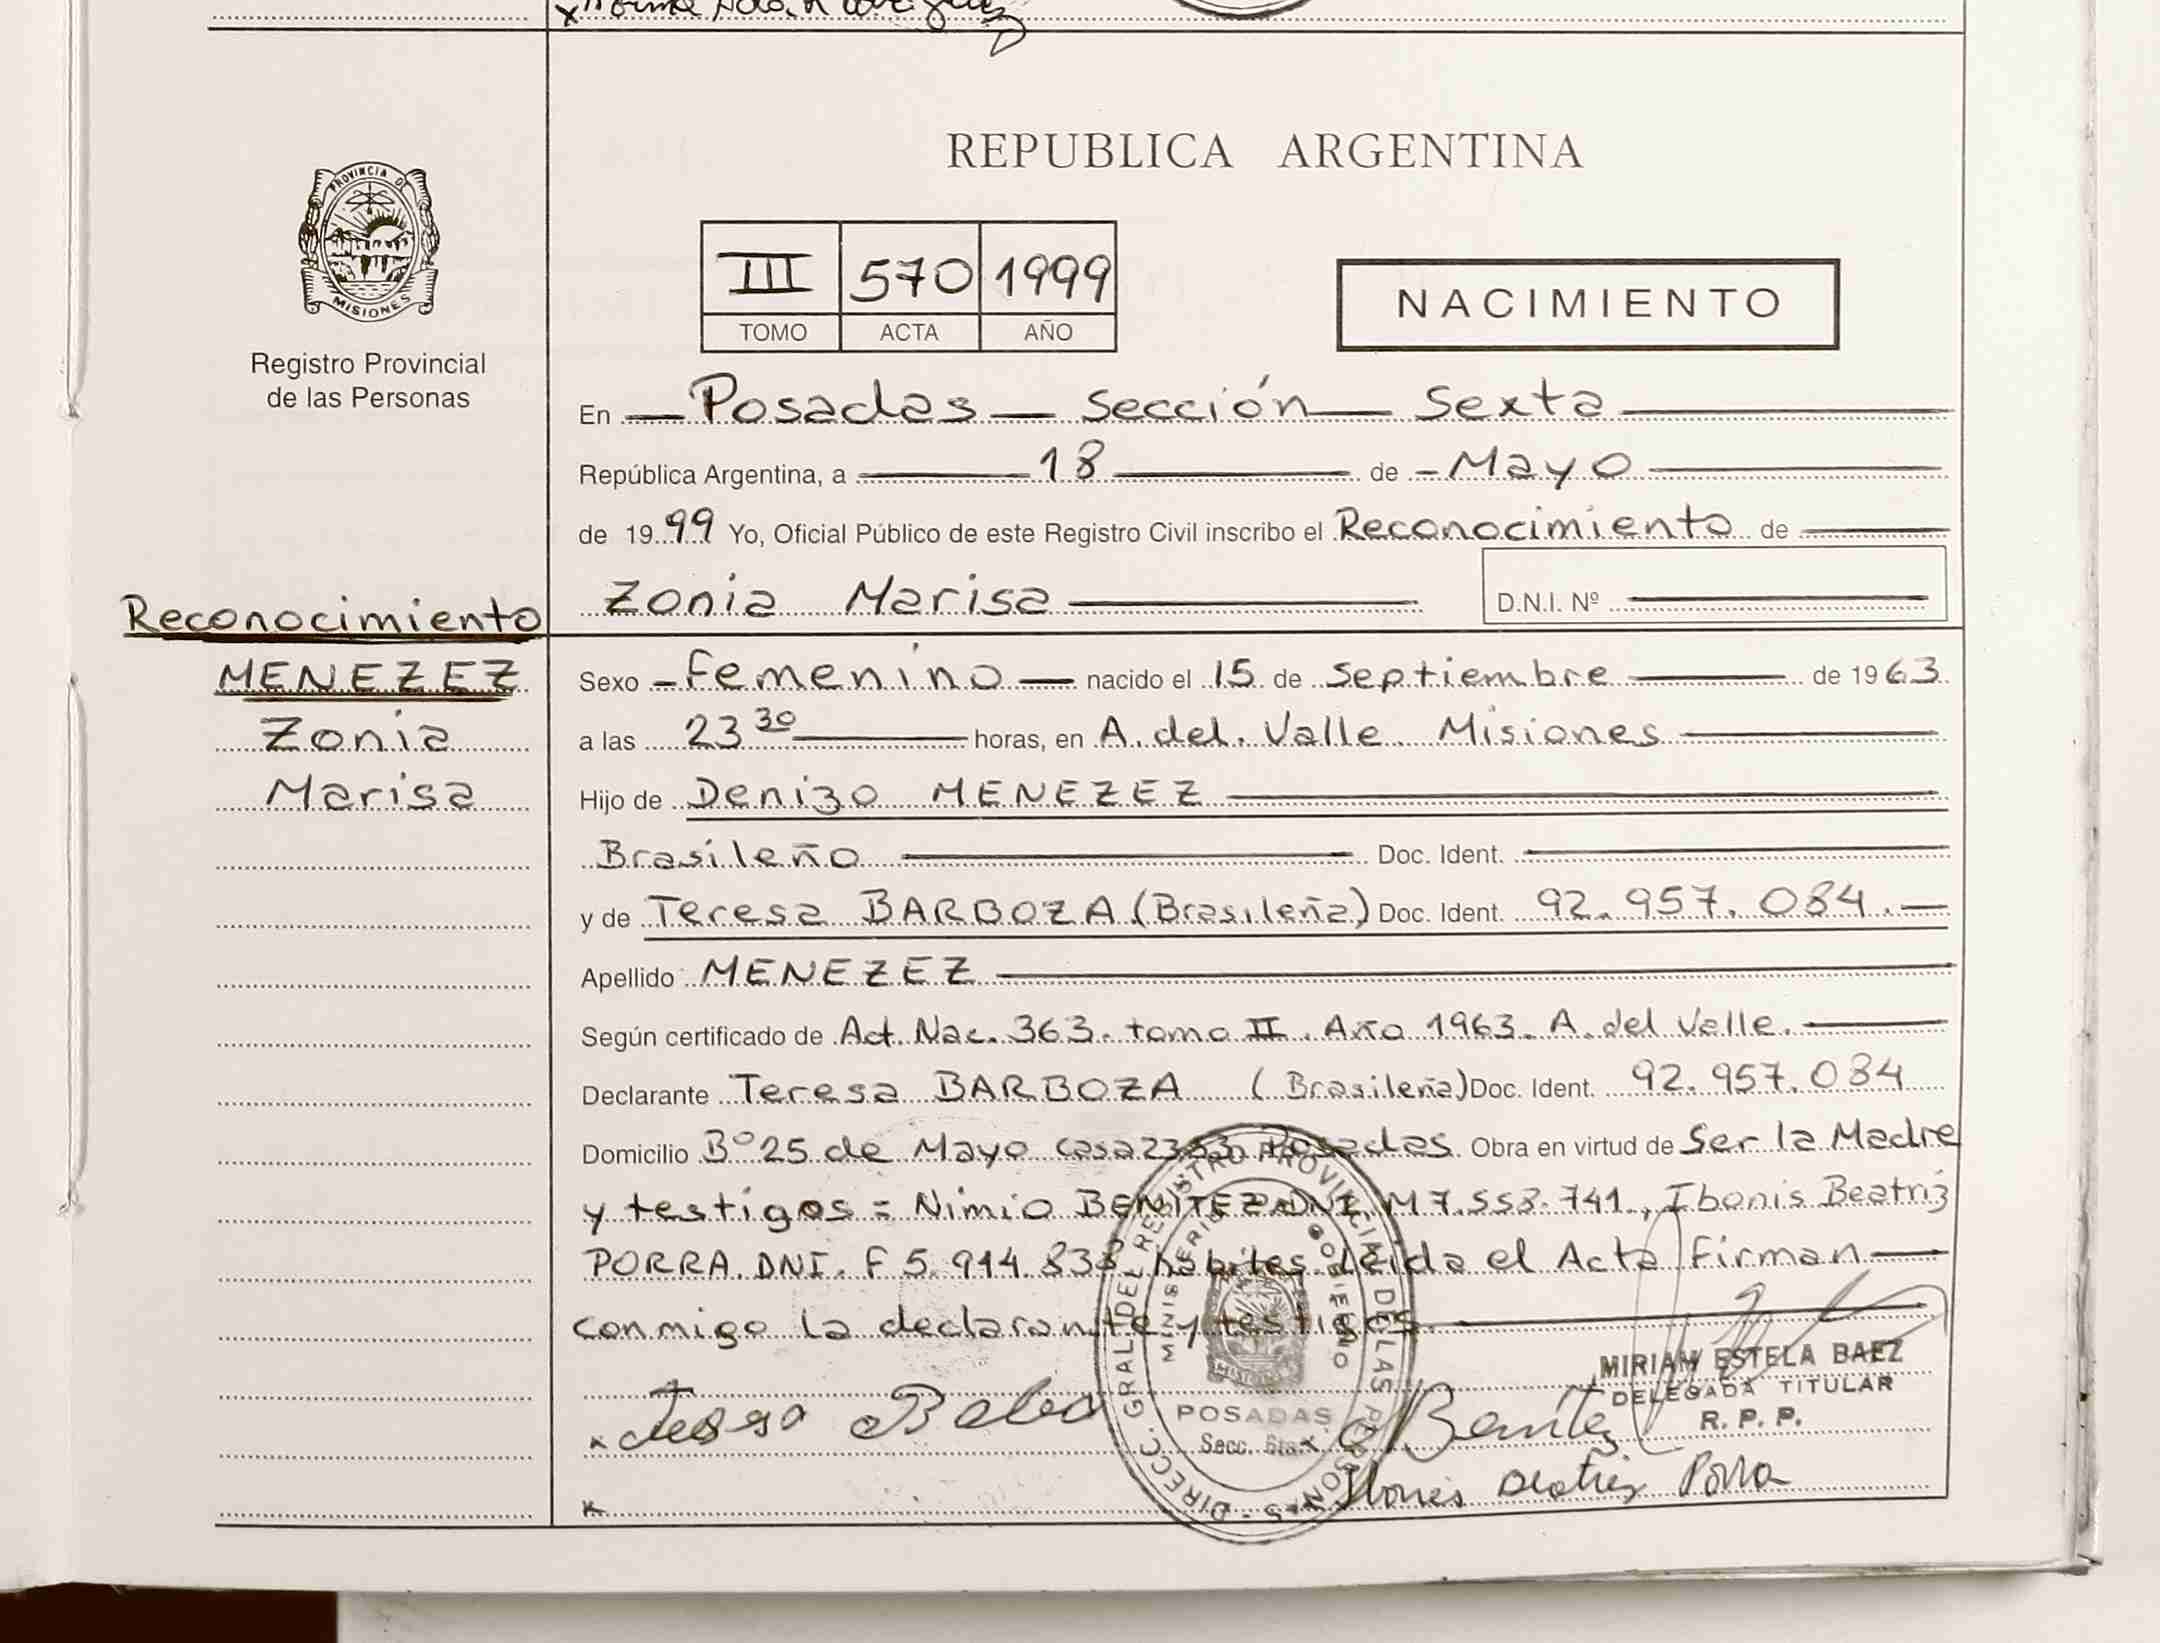 PROVINCIA DE
MISIONES
Registro Provincial
de las Personas
REPUBLICA ARGENTINA
III 570 1999
TOMO ACTA AÑO
NACIMIENTO
En Posadas sección Sexta
República Argentina, a 18 de Mayo
de 1999 Yo, Oficial Público de este Registro Civil inscribo el Reconocimiento de
Zonia Marisa D.N.I. Nº
Reconocimiento
MENEZEZ
Zonia
Marisa
Sexo Femenino nacido el 15 de septiembre de 1963
a las 23 30 horas, en A. del. Valle Misiones
Hijo de Denizo MENEZEZ
Brasileño Doc. Ident.
y de Teresa BARBOZA (Brasileña) Doc. Ident. 92.957.084.
Apellido MENEZEZ
Según certificado de Act. Nac. 363. tomo II. Año 1963. A. del Valle.
Declarante Teresa BARBOZA (Brasileña) Doc. Ident. 92.957.084
Domicilio Bº 25 de Mayo casa Posadas. Obra en virtud de Ser la Madre
y testigos = Nimio BENITEZ DNI. M 7.553.741., Ibonis Beatriz
PORRA. DNI. F 5.914.838 habiles leida el Acta Firman
conmigo la declarante y testigos.
MIRIAM ESTELA BAEZ
DELEGADA TITULAR
R. P. P.
DIRECC. GRAL. DEL REGISTRO PROVINCIAL DE LAS PERSONAS
MINISTERIO GOBIERNO
POSADAS
Secc. 6ta
Benitez
Ibonis Beatriz Porra